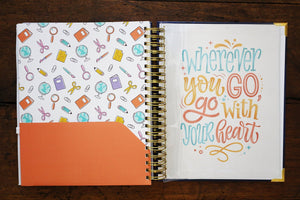 wherever
you GO,
go with
YOUR heart